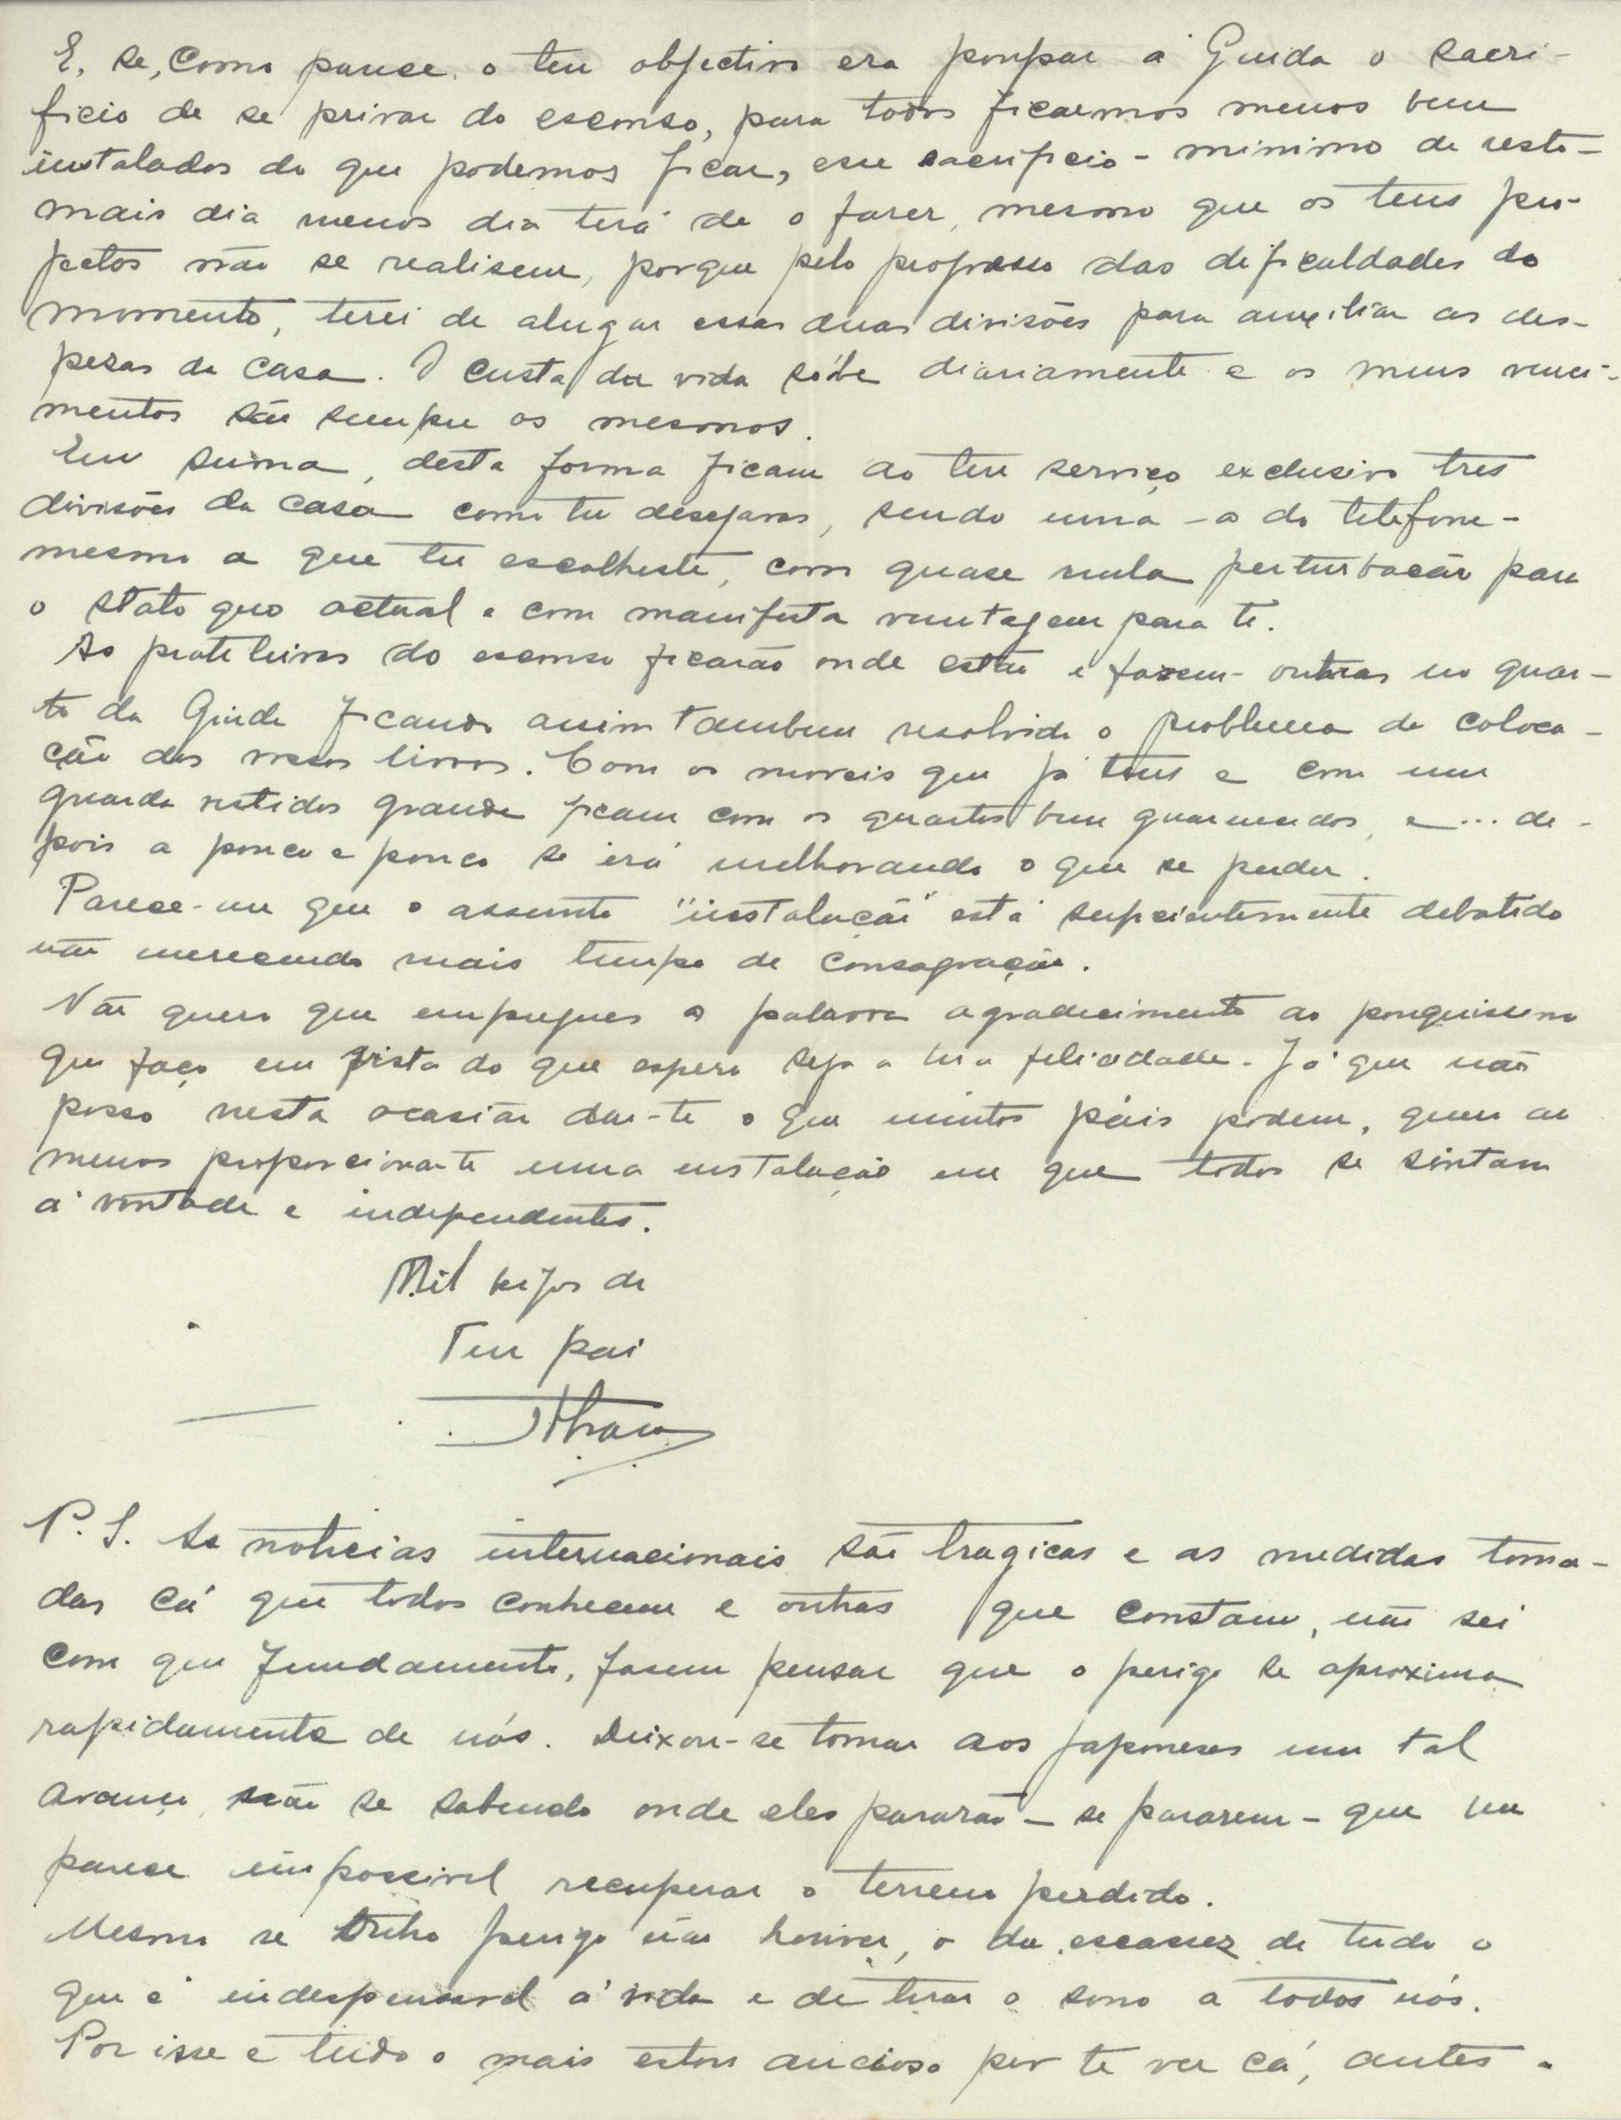 E, se, como parece, o teu objectivo era poupar á Guida o sacri-
ficio de se privar do esconso, para todos ficarmos menos bem
instalados do que podemos ficar, esse sacrificio - minimo de resto -
mais dia menos dia terá de o fazer, mesmo que os teus pro-
jectos não se realisem, porque pelo progresso das dificuldades do
momento, terei de alugar essas duas divisões para auxiliar as des-
pezas da casa. O custo da vida sóbe diariamente e os meus venci-
mentos são sempre os mesmos.
Em suma, desta forma ficam ao teu serviço exclusivo tres
divisões da casa como tu desejavas, sendo uma - a do telefone -
mesmo a que tu escolheste, com quase nula perturbação para
o stato quo actual e com manifesta vantagem para ti.
As prateleiras do esconso ficarão onde estão e fazem-outras no quar-
to da Guida ficando assim tambem resolvido o problema da coloca-
ção dos vossos livros. Com os moveis que já tens e com um
guarda vestidos grande ficam com os quartos bem guarnecidos, e... de-
pois a pouco e pouco se irá melhorando o que se puder.
Parece-me que o assunto "instalação" está suficientemente debatido
não merecendo mais tempo de consagração.
Não quero que empregues a palavra agradecimento ao pouquissimo
que faço em vista do que espero seja a tua felicidade. Já que não
posso nesta ocasião dar-te o que muitos páis podem, quero ao
menos proporcionar-te uma instalação em que todos se sintam
á vontade e independentes.
Mil beijos de
Teu pai
P.S. As noticias internacionais são tragicas e as medidas toma-
das cá que todos conhecem e outras que constam, não sei
com que fundamento, fazem pensar que o perigo se aproxima
rapidamente de nós. Deixou-se tomar aos japoneses um tal
avanço, não se sabendo onde eles pararão - se pararem - que me
parece impossivel recuperar o terreno perdido.
Mesmo se outro perigo não houver, o da escassez de tudo o
que é indespensavel á vida e de tirar o sono a todos nós.
Por isso e tudo o mais estou ancioso por te ver cá, antes